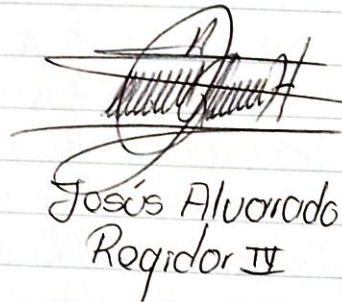 Josús Alvarado
Regidor IV